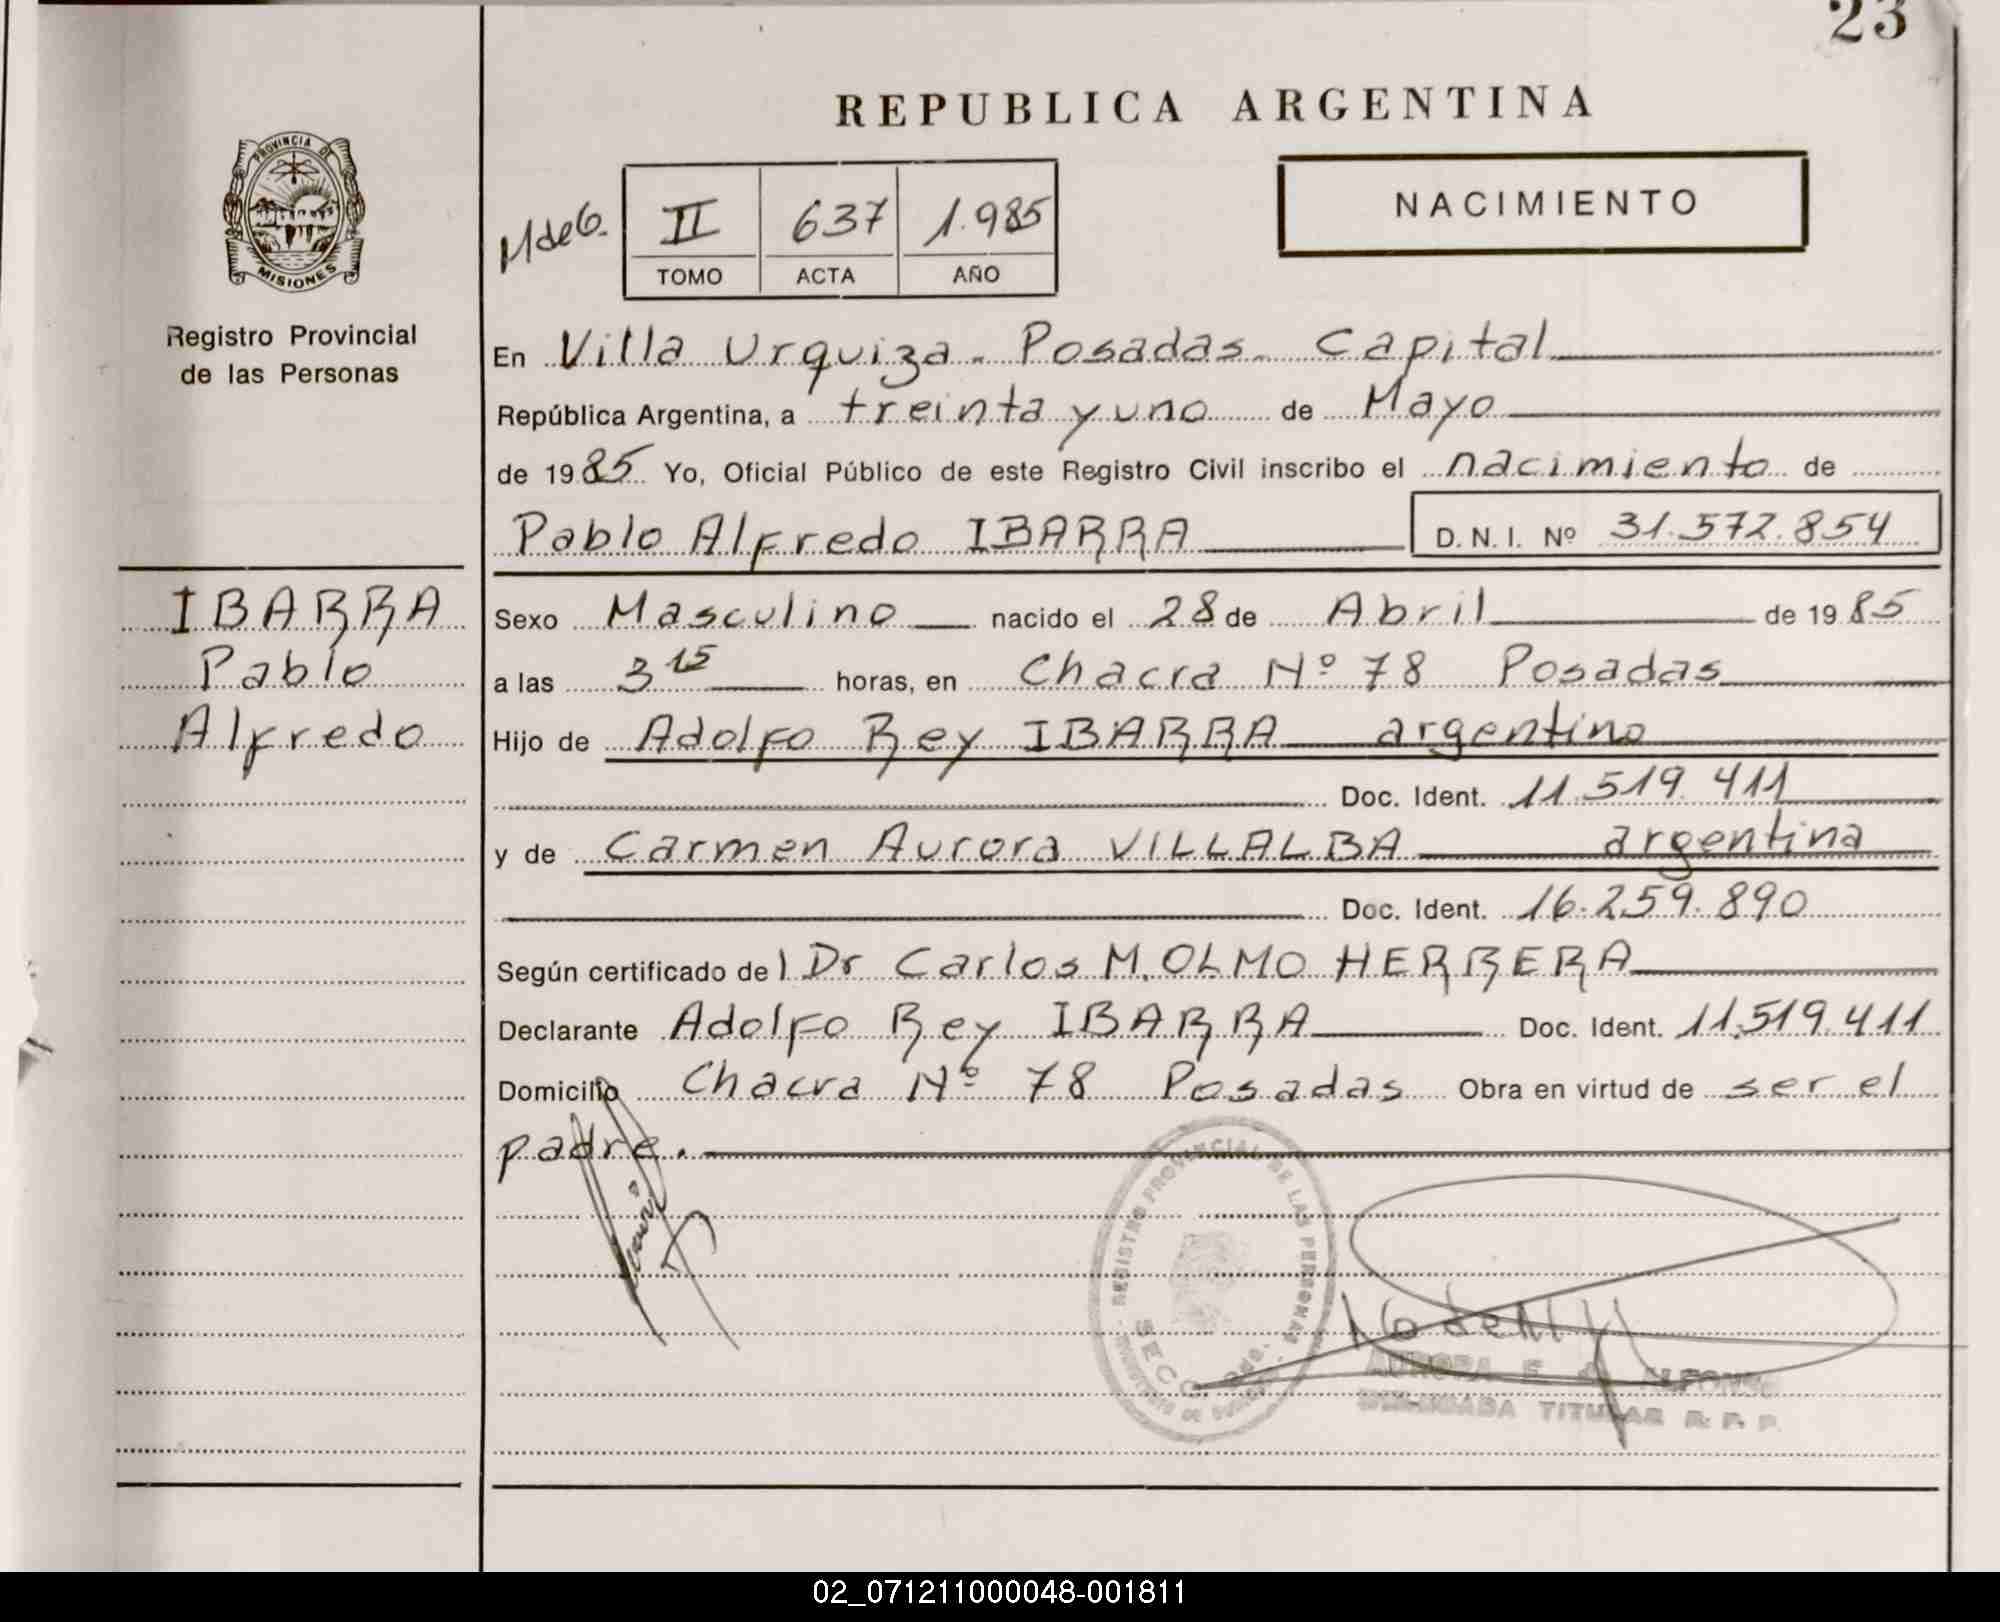 23
REPUBLICA ARGENTINA
PROVINCIA DE
MISIONES
Registro Provincial
de las Personas
MdeG.
II 637 1.985
TOMO ACTA AÑO
NACIMIENTO
En Villa Urquiza. Posadas. Capital
República Argentina, a treinta y uno de Mayo
de 1985 Yo, Oficial Público de este Registro Civil inscribo el nacimiento de
Pablo Alfredo IBARRA D.N.I. Nº 31.572.854
IBARRA
Pablo
Alfredo
Sexo Masculino nacido el 28 de Abril de 1985
a las 3 15 horas, en Chacra Nº 78 Posadas
Hijo de Adolfo Rey IBARRA argentino
Doc. Ident. 11.519.411
y de Carmen Aurora VILLALBA argentina
Doc. Ident. 16.259.890
Según certificado del Dr Carlos M. OLMO HERRERA
Declarante Adolfo Rey IBARRA Doc. Ident. 11.519.411
Domicilio Chacra Nº 78 Posadas Obra en virtud de ser el
padre.
REGISTRO PROVINCIAL DE LAS PERSONAS
AURORA E ALFONSO
TITULAR R. P. P.
02_071211000048-001811